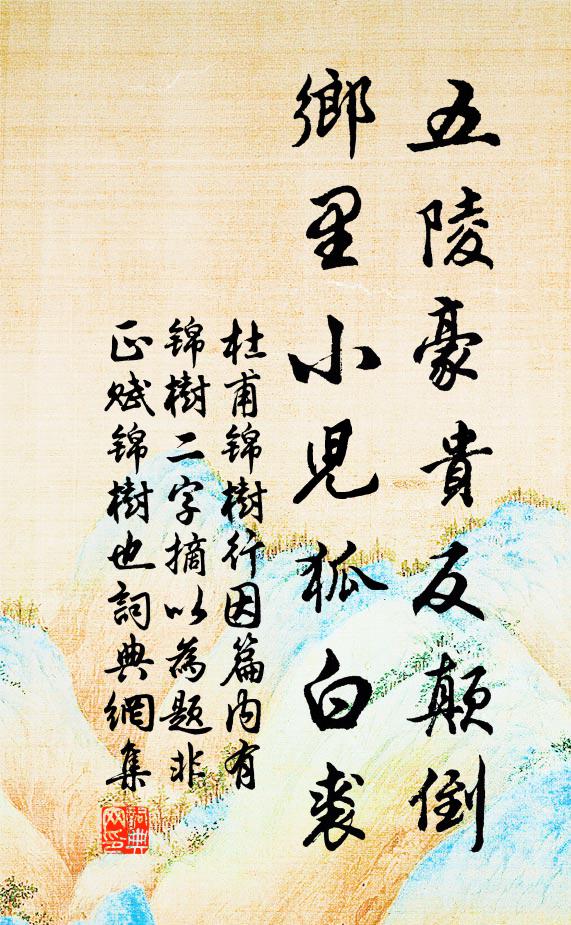 五陵豪貴反顛倒
鄉里小兒狐白裘
杜甫錦樹行因篇內有
錦樹二字摘以為題非
正賦錦樹也詞典網集
詞典
网印